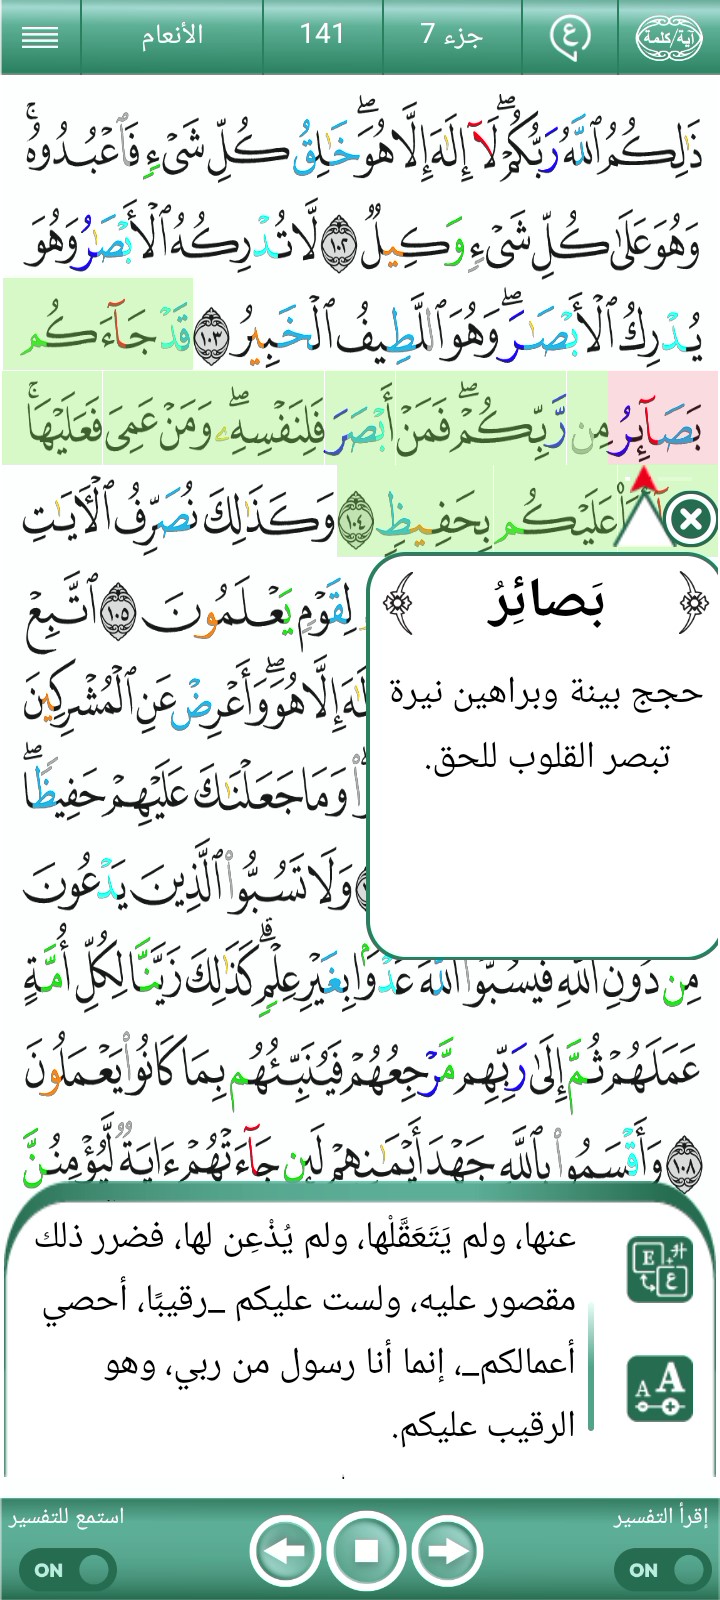 آية/كلمة
ع
جزء 7
141
الأنعام
ذَٰلِكُمُ ٱللَّهُ رَبُّكُمْۖ لَآ إِلَٰهَ إِلَّا هُوَۖ خَٰلِقُ كُلِّ شَىْءٍ فَٱعْبُدُوهُۚ
وَهُوَ عَلَىٰ كُلِّ شَىْءٍ وَكِيلٌ ١٠٢ لَّا تُدْرِكُهُ ٱلْأَبْصَٰرُ وَهُوَ
يُدْرِكُ ٱلْأَبْصَٰرَۖ وَهُوَ ٱللَّطِيفُ ٱلْخَبِيرُ ١٠٣ قَدْ جَآءَكُم
بَصَآئِرُ مِن رَّبِّكُمْۖ فَمَنْ أَبْصَرَ فَلِنَفْسِهِۦۖ وَمَنْ عَمِىَ فَعَلَيْهَاۚ
عَلَيْكُم بِحَفِيظٍ ١٠٤ وَكَذَٰلِكَ نُصَرِّفُ ٱلْءَايَٰتِ
لِقَوْمٍ يَعْلَمُونَ ١٠٥ ٱتَّبِعْ
إِلَّا هُوَۖ وَأَعْرِضْ عَنِ ٱلْمُشْرِكِينَ
وَمَا جَعَلْنَٰكَ عَلَيْهِمْ حَفِيظًاۖ
وَلَا تَسُبُّوا۟ ٱلَّذِينَ يَدْعُونَ
مِن دُونِ ٱللَّهِ فَيَسُبُّوا۟ ٱللَّهَ عَدْوًۢا بِغَيْرِ عِلْمٍۗ كَذَٰلِكَ زَيَّنَّا لِكُلِّ أُمَّةٍ
عَمَلَهُمْ ثُمَّ إِلَىٰ رَبِّهِم مَّرْجِعُهُمْ فَيُنَبِّئُهُم بِمَا كَانُوا۟ يَعْمَلُونَ
١٠٨ وَأَقْسَمُوا۟ بِٱللَّهِ جَهْدَ أَيْمَٰنِهِمْ لَئِن جَآءَتْهُمْ ءَايَةٌ لَّيُؤْمِنُنَّ
بَصائِرُ
حجج بينة وبراهين نيرة
تبصر القلوب للحق.
عنها، ولم يَتَعَقَّلْها، ولم يُذْعِن لها، فضرر ذلك
مقصور عليه، ولست عليكم _رقيبًا، أحصي
أعمالكم_، إنما أنا رسول من ربي، وهو
الرقيب عليكم.
E
ع
A A
إقرأ التفسير
استمع للتفسير
ON
ON